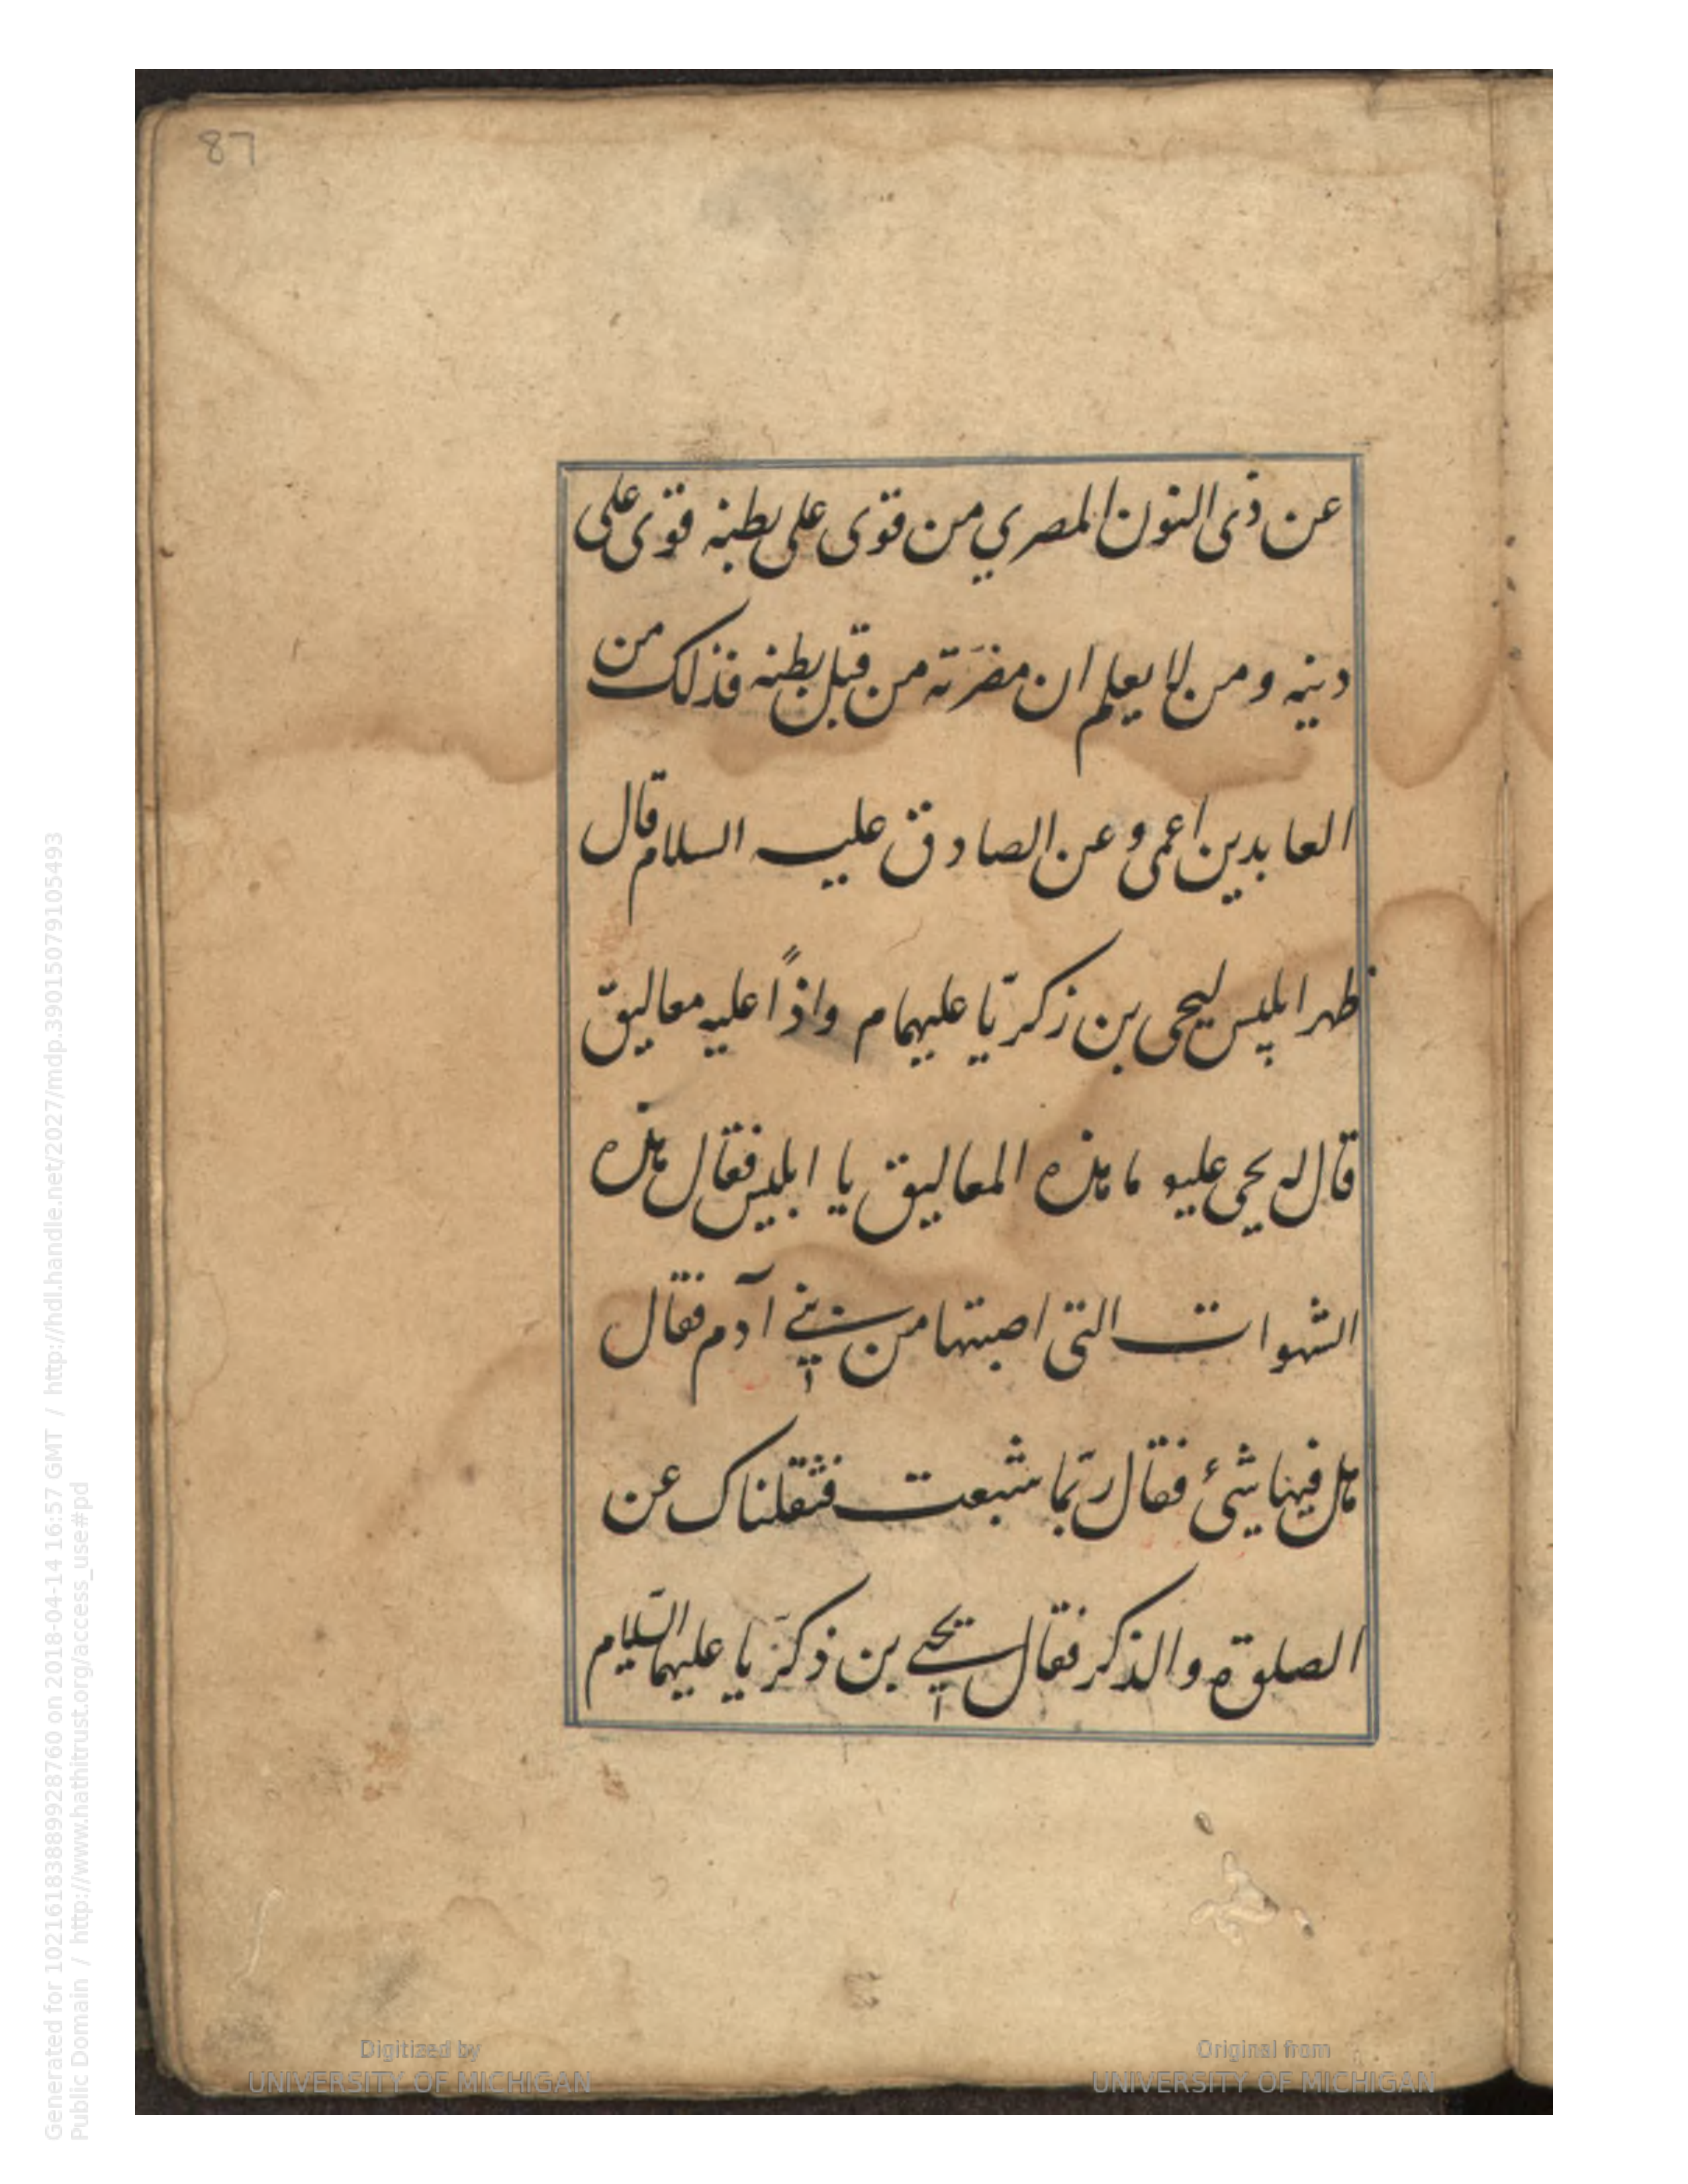 87
عن ذى النون المصري من قوى على بطنه قوى على
دينه ومن لا يعلم ان مضرّته من قبل بطنه فذلك من
العابدين اعمى وعن الصادق عليه السلام قال
ظهر ابليس ليحيى بن زكريّا عليهمام واذًا عليه معاليق
قال له يحيى عليه ما هذه المعاليق يا ابليس فقال هذه
الشهوات التى اصبتها من بني آدم فقال
هل فيها شىء فقال ربّما شبعت فثقلناك عن
الصلوة والذكر فقال يحيى بن ذكرّيا عليهما السّلام
Digitized by
UNIVERSITY OF MICHIGAN
Original from
UNIVERSITY OF MICHIGAN
Generated for 10216183889928760 on 2018-04-14 16:57 GMT / http://hdl.handle.net/2027/mdp.39015079105493
Public Domain / http://www.hathitrust.org/access_use#pd